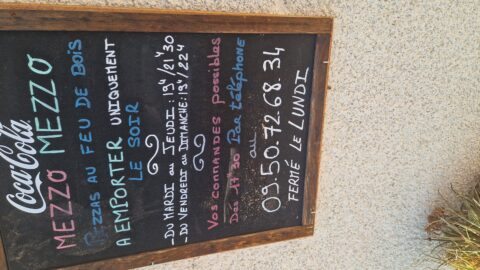 Coca-Cola
MEZZO MEZZO
PIZZAS AU FEU DE BOIS
A EMPORTER UNIQUEMENT
LE SOIR
- DU MARDI au JEUDI : 19H / 21H30
- DU VENDREDI au DIMANCHE : 19H / 22H
VOS COMMANDES possibles
Dès 17H30 Par téléphone
au
09.50.72.68.34
FERMÉ LE LUNDI